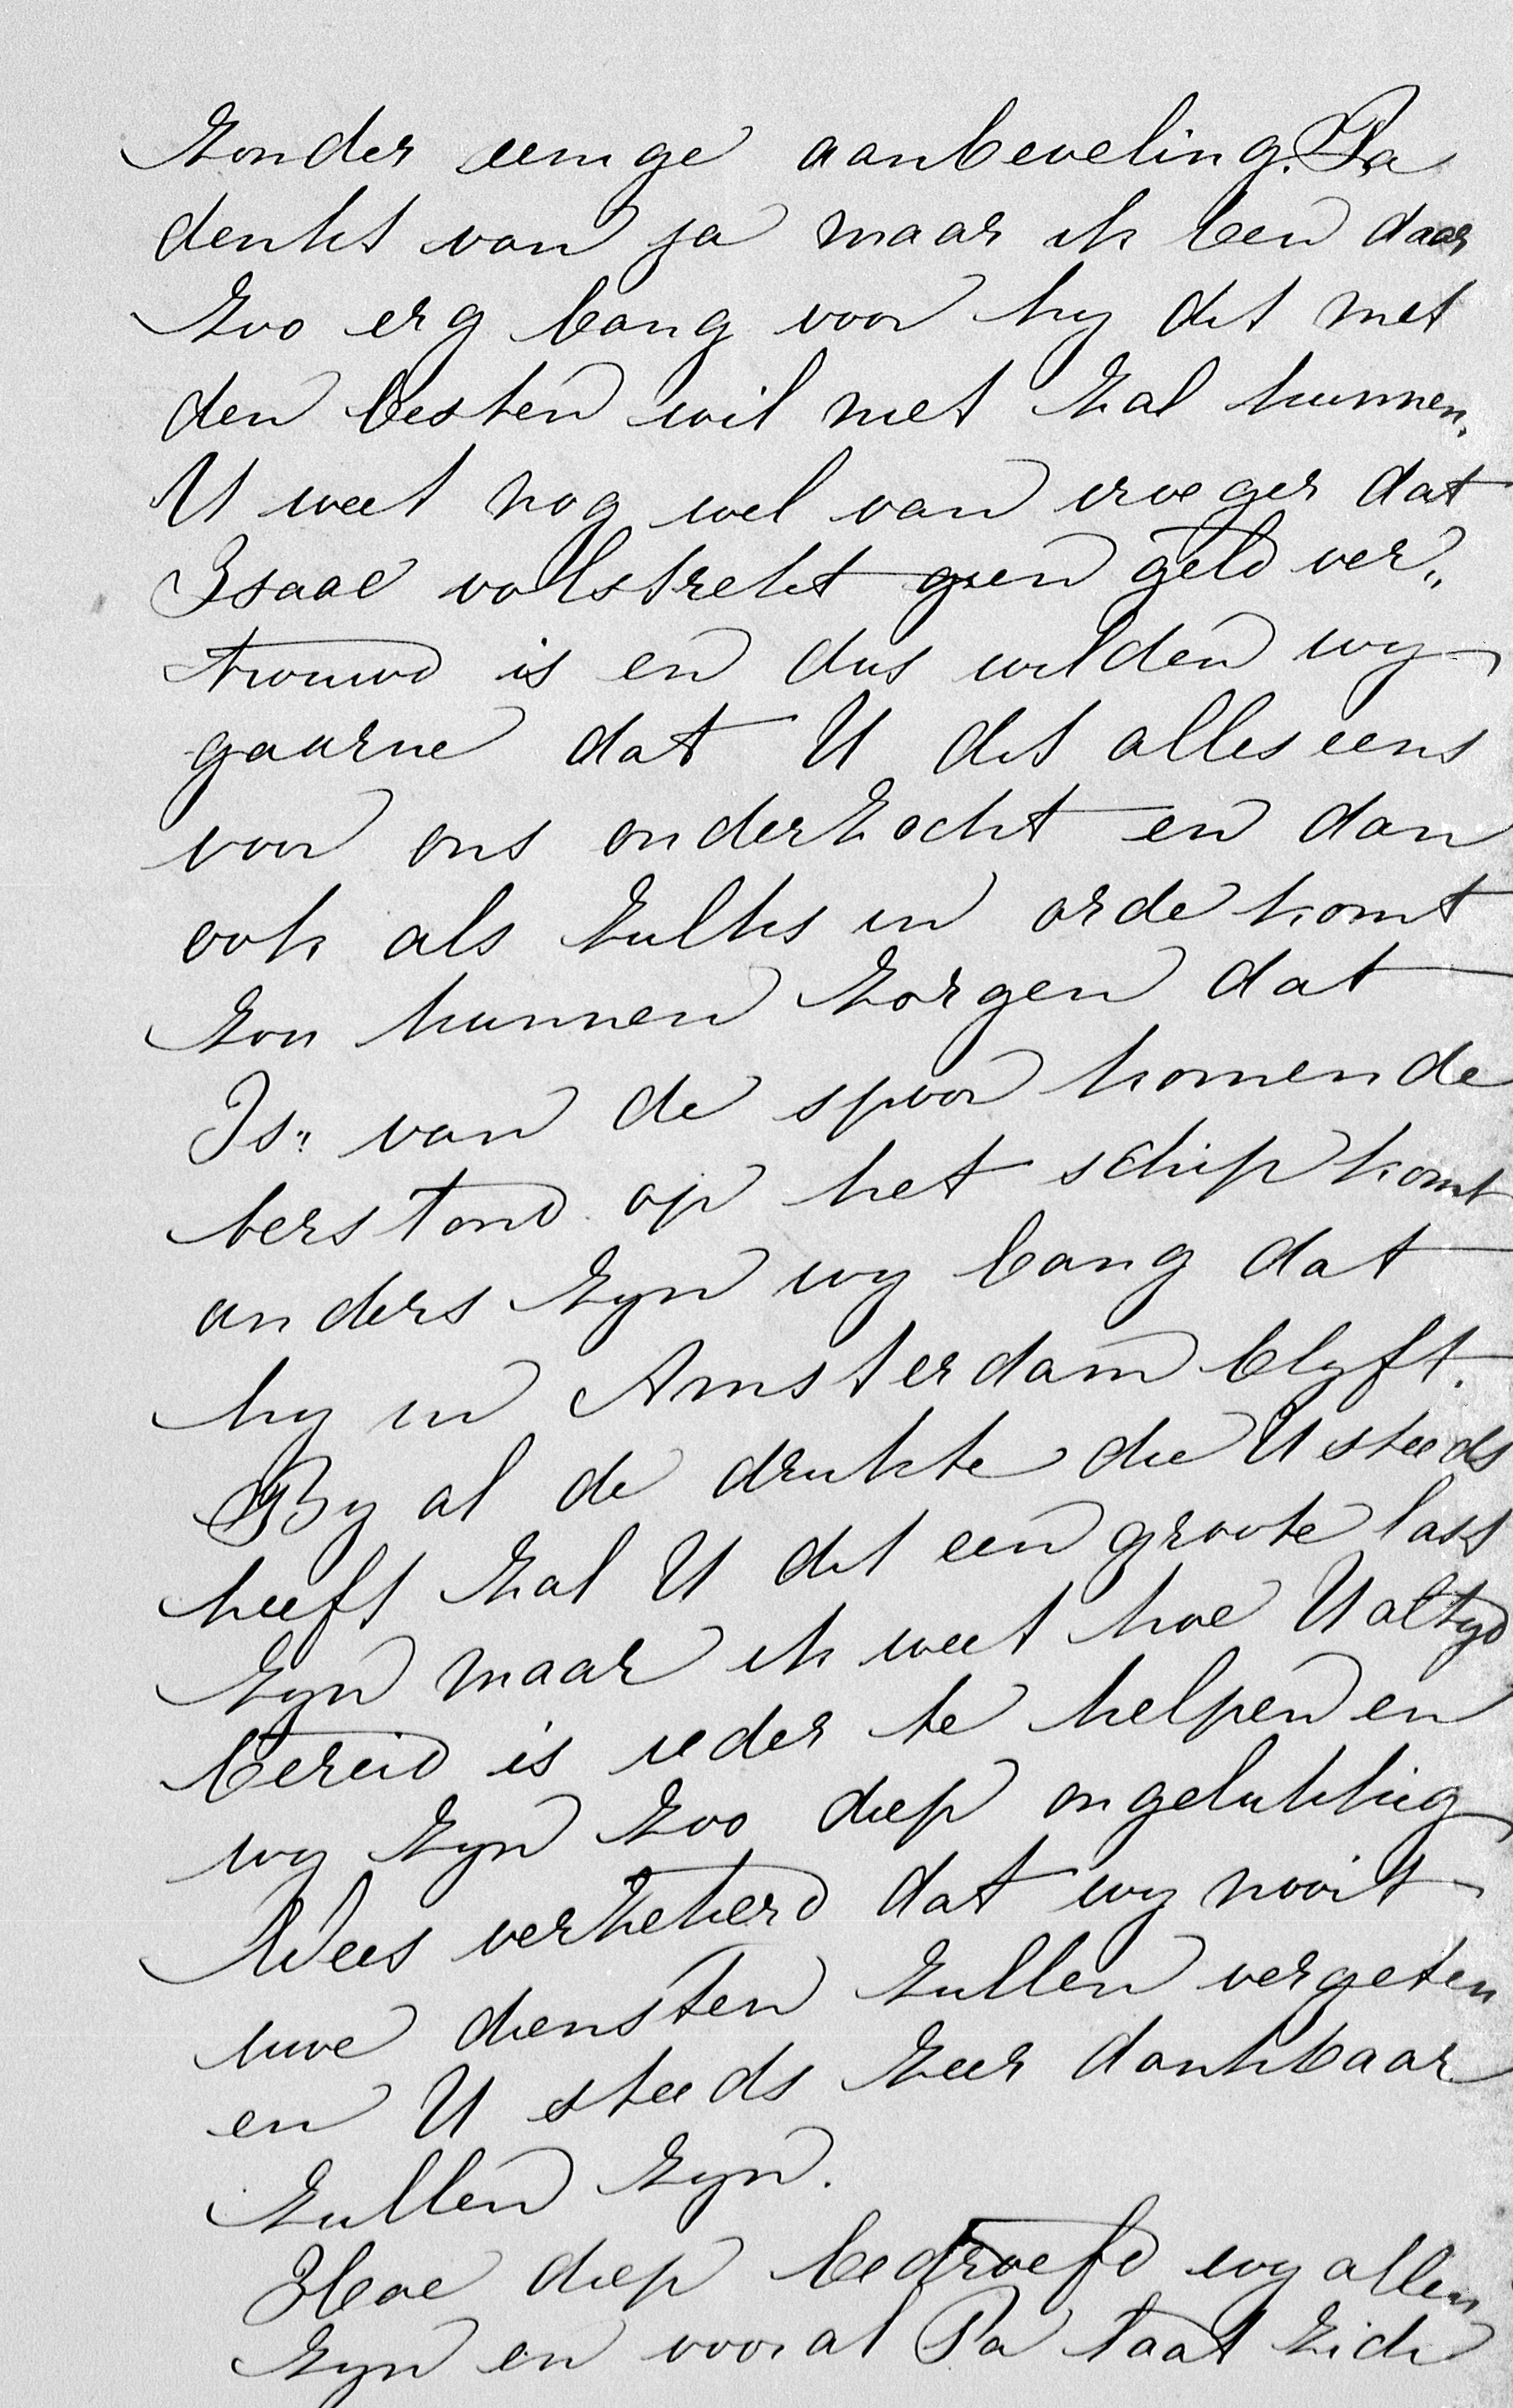 Zonder eenige aanbeveling. Pa
denkt van ja maar ik ben daar
Zoo erg bang voor hy dit met
den besten wil niet Zal kunnen.
U weet nog wel van vroeger dat
Isaac volstrekt geen geld ver„
trouwd is en dus wilden wy
gaarne dat U dit alles eens
voor ons onderzocht en dan
ook als Zulks in orde komt
Zou kunnen Zorgen dat
Is" van de spoor komende
terstond op het schip komt
anders Zyn wy bang dat
hy in Amsterdam blyft.
By al de drukte die U steeds
heeft Zal U dit een groote last
Zyn maar ik weet hoe U altyd
bereid is ieder te helpen en
wy Zyn Zoo diep ongelukkig
Wees verzekerd dat wy nooit
uwe diensten Zullen vergeten
en U steeds Zeer dankbaar
Zullen Zyn.
Hoe diep bedroefd wy allen
Zyn en vooral Pa laat Zich